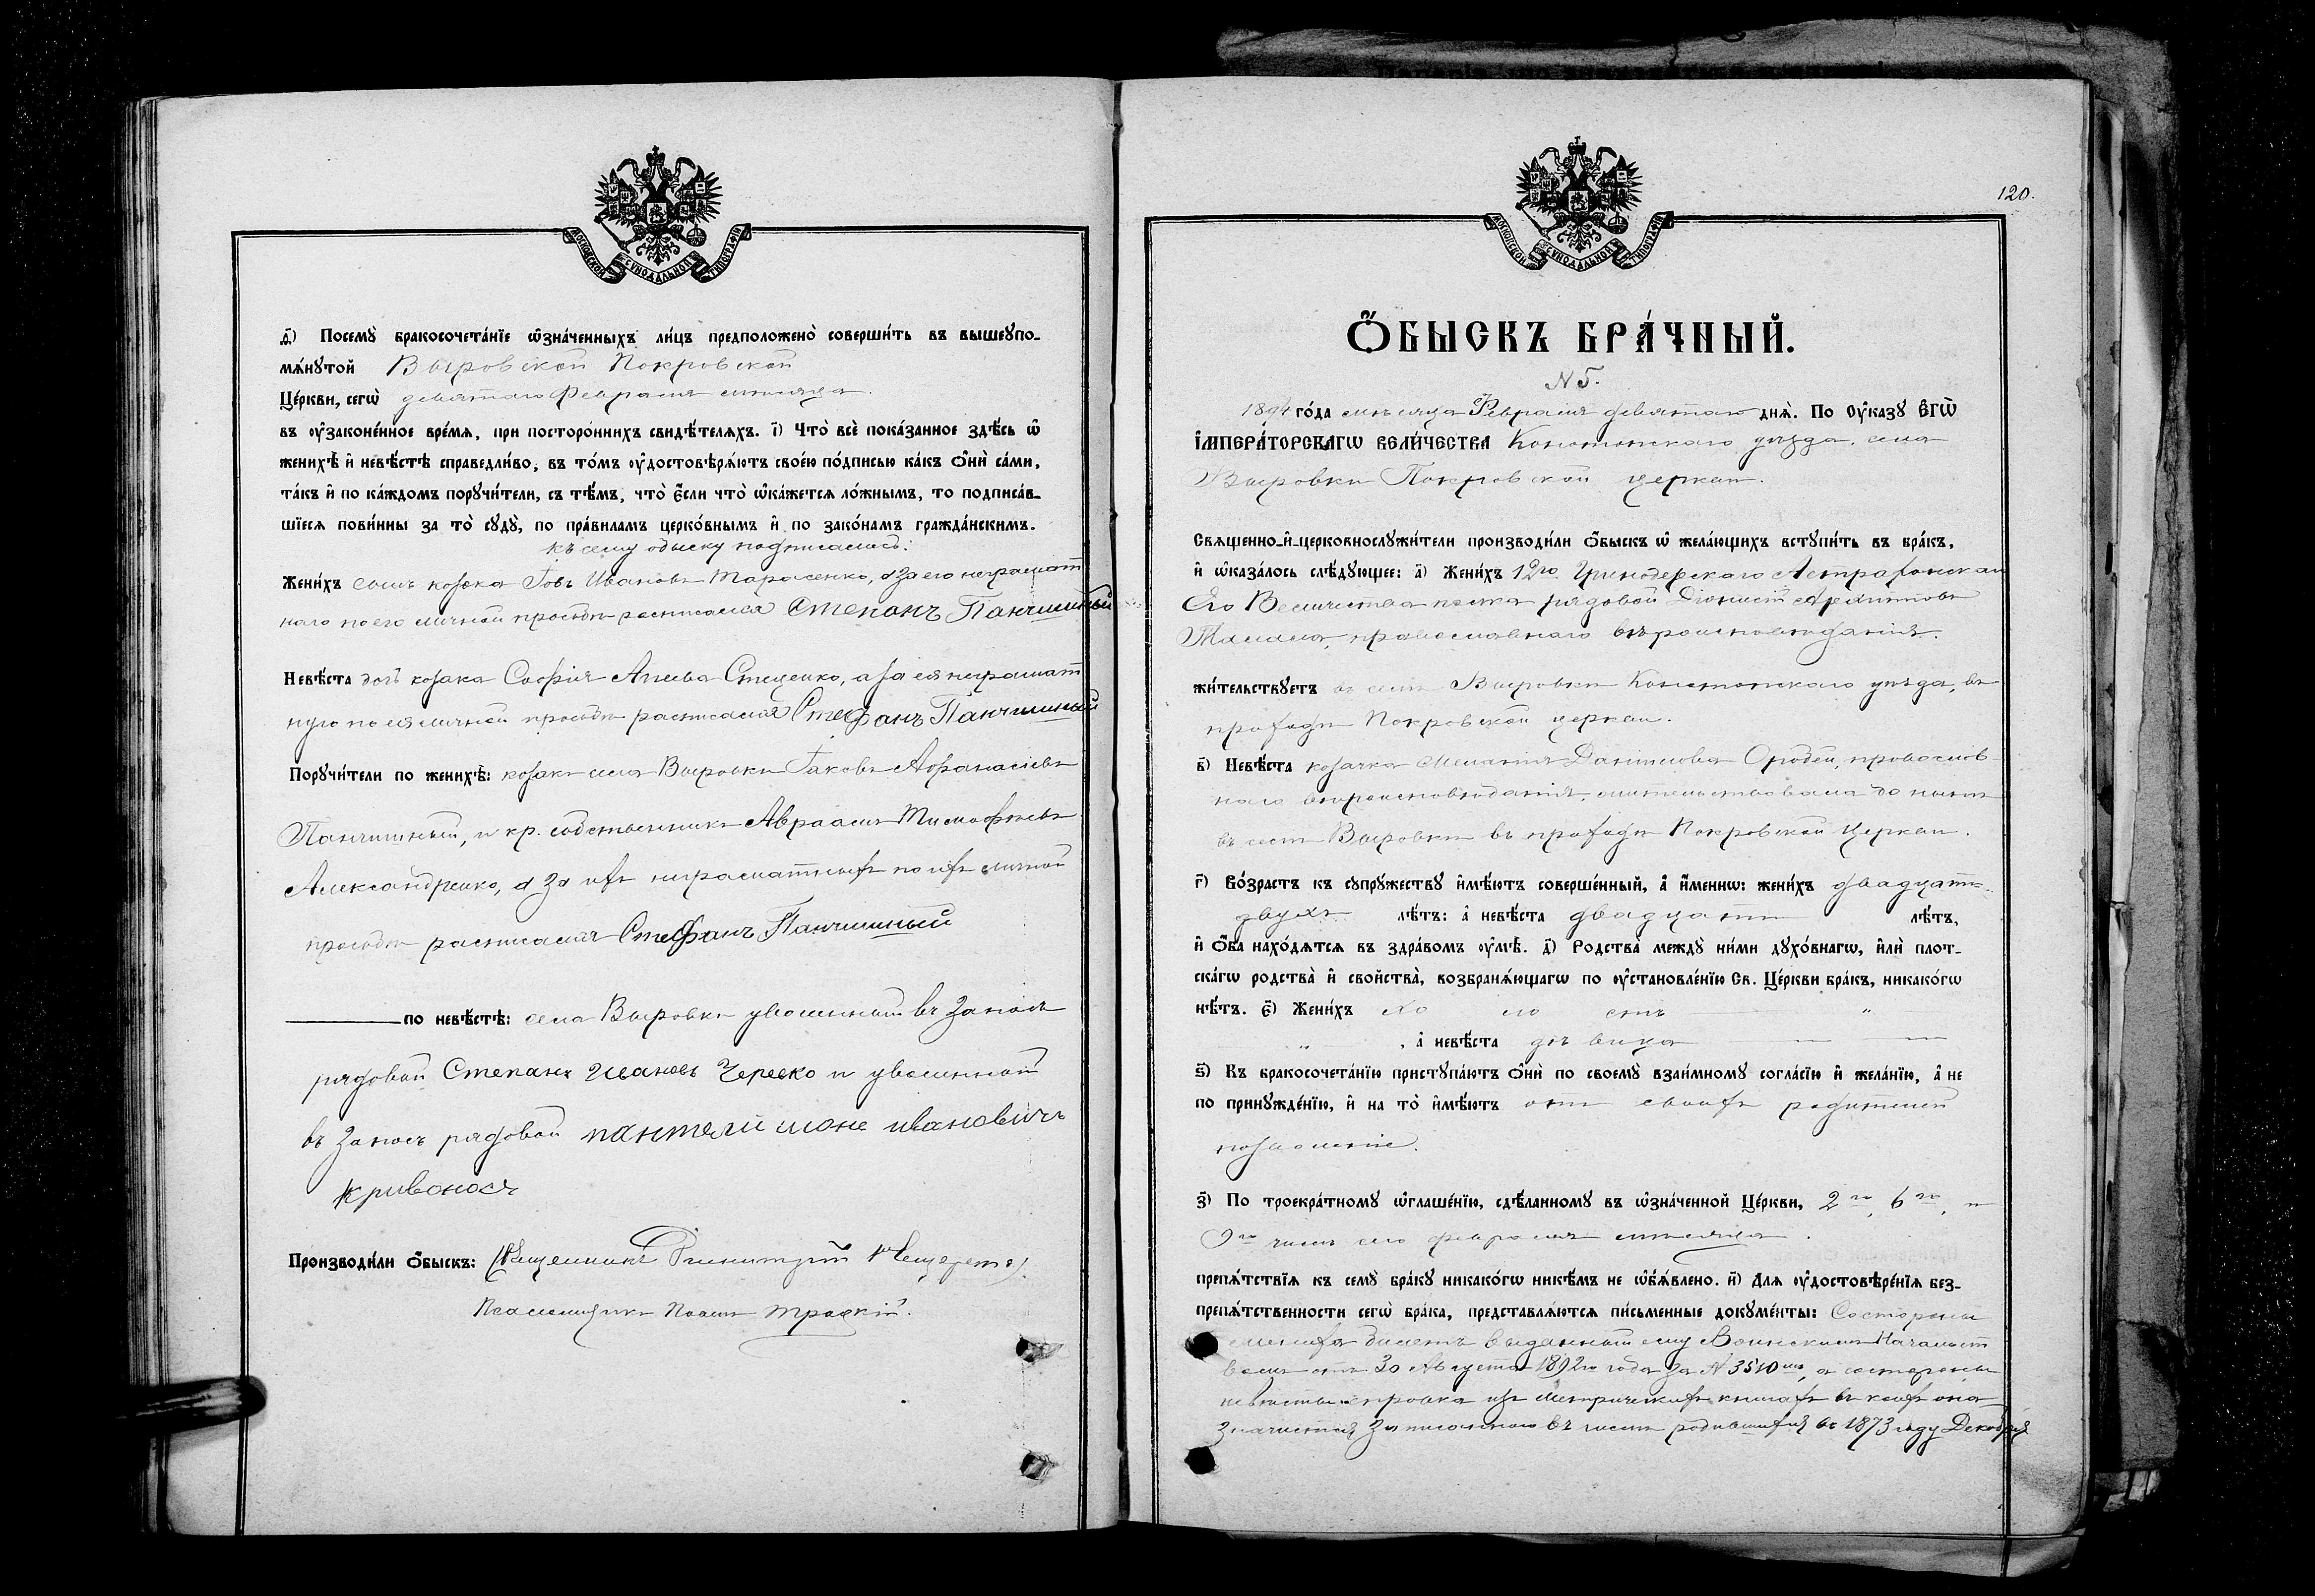 МОСКОВСКОЙ СУНОДАЛЬНОЙ ТИПОГРАФІИ
д҃) Посемꙋ̀ бракосочета́нїе ѡ҆зна́ченныхъ ли́цъ предположено̀ соверши́ть въ вышеꙋпо-
мѧ́нꙋтой Выровской Покровской
Це́ркви, сегѡ̀ девятаго Февраля месяца.
въ ᲂу҆законе́нное вре́мѧ, при посторо́ннихъ свидѣ́телѧхъ. і҃) Что̀ всѐ пока́занное здѣ́сь ѡ҆
женихѣ̀ и҆ невѣ́стѣ справедли́во, въ то́мъ ᲂу҆достовѣрѧ́ютъ свое́ю по́дписью ка́къ ѻ҆нѝ са́ми,
та́къ и҆ по ка́ждомъ порꙋчи́тели, съ тѣ́мъ, что̀ є҆́сли что̀ ѡ҆ка́жетсѧ ло́жнымъ, то подписа́в-
шїесѧ пови́нны за то̀ сꙋдꙋ̀, по пра́виламъ церко́внымъ и҆ по зако́намъ гражда́нскимъ.
къ сему обыску подписались:
Жени́хъ сынъ козака Іовъ Ивановъ Тарасенко, а за его неграмот
наго по его личной просьбѣ расписался Степанъ Панчишный
Невѣ́ста дочь козака Софія Стеценко, а за ея неграмот
ную по ея личной просьбѣ расписался Стефанъ Панчишный
Порꙋчи́тели по женихѣ̀: козакъ села Выровки Іаковъ Афанасіевъ
Панчишный, и кр. собственникъ Авраамъ Тимофѣевъ
Александренко, а за ихъ неграмотныхъ по ихъ личной
просьбѣ расписался Стефанъ Панчишный
по невѣ́стѣ: села Выровки уволенный въ запасъ
рядовой Степанъ Ивановъ Черевко и уволенной
въ запасъ рядовой пантелиймонъ ивановичъ
кривонося
Производи́ли ѻ҆́быскъ: Священникъ Димитрій
Псаломщикъ
120.
МОСКОВСКОЙ СУНОДАЛЬНОЙ ТИПОГРАФІИ
Ѻ҆́БЫСКЪ БРА́ЧНЫЙ.
N 5.
1894 го́да месяца Февраля девятаго днѧ̀. По Оу҆ка́зꙋ Є҆ГѠ̀
І҆МПЕРА́ТОРСКАГѠ ВЕЛИ́ЧЕСТВА Конотопскаго уѣзда, села
Выровки Покровской церкви.
Свѧще́нно-и҆-церковнослꙋжи́тели производи́ли ѻ҆́быскъ ѡ҆ жела́ющихъ встꙋпи́ть въ бра́къ,
и҆ ѡ҆каза́лось слѣ́дꙋющее: а҃) Жени́хъ 12го Гринодерскаго Астраханскаго
Его Величества полка рядовой Діонисій Архиповъ
православнаго вѣроисповѣданія.
жи́тельствꙋетъ въ селѣ Выровки Конотопскаго уѣзда, въ
приходѣ Покровской церкви.
в҃) Невѣ́ста козачка Меланія Даніилова православ
наго вѣроисповѣданія, жительствовала до нынѣ
въ селѣ Выровки въ приходѣ Покровской церкви.
г҃) Во́зрастъ къ сꙋпрꙋ́жествꙋ и҆мѣ́ютъ соверше́нный, а҆̀ и҆́меннѡ: жени́хъ двадцати
двухъ лѣ́тъ: а҆̀ невѣ́ста двадцати лѣ́тъ,
и҆ ѻ҆́ба нахо́дѧтсѧ въ здра́вомъ ᲂу҆мѣ̀. д҃) Родства̀ междꙋ̀ ни́ми дꙋхо́внагѡ, и҆лѝ плот-
ска́гѡ родства̀ и҆ сво́йства̀, возбранѧ́ющагѡ по ᲂу҆становле́нїю Св. Це́ркви бра́къ, никако́гѡ
нѣ́тъ. є҃) Жени́хъ хо ло стъ "
" , а҆̀ невѣ́ста дѣ вица
ѕ҃) Къ бракосочета́нїю пристꙋпа́ютъ ѻ҆нѝ по своемꙋ̀ взаи́мномꙋ согла́сїю и҆ жела́нїю, а҆̀ не
по принꙋжде́нїю, и҆ на то̀ и҆мѣ́ютъ отъ своихъ родителей
позволеніе.
з҃) По троекра́тномꙋ ѡ҆глаше́нїю, сдѣ́ланномꙋ въ ѡ҆зна́ченной Це́ркви, 2го, 6го, и
9го чиселъ сего февраля месяца.
препѧ́тствїѧ къ семꙋ̀ бра́кꙋ никако́гѡ никѣ́мъ не ѡ҆б̾ѧ́влено. и҃) Длѧ ᲂу҆достовѣре́нїѧ без-
препѧ́тственности сегѡ̀ бра́ка, представлѧ́ютсѧ пи́сьменные докꙋме́нты: Со стороны
жениха билетъ выданный ему Воинскимъ Начальст
вомъ отъ 30 Августа 1892го года за N 3510мъ, а со стороны
невѣсты справка изъ метрическихъ книгахъ въ коихъ она
значится записанною въ числѣ родившихся въ 1873 году Декабря